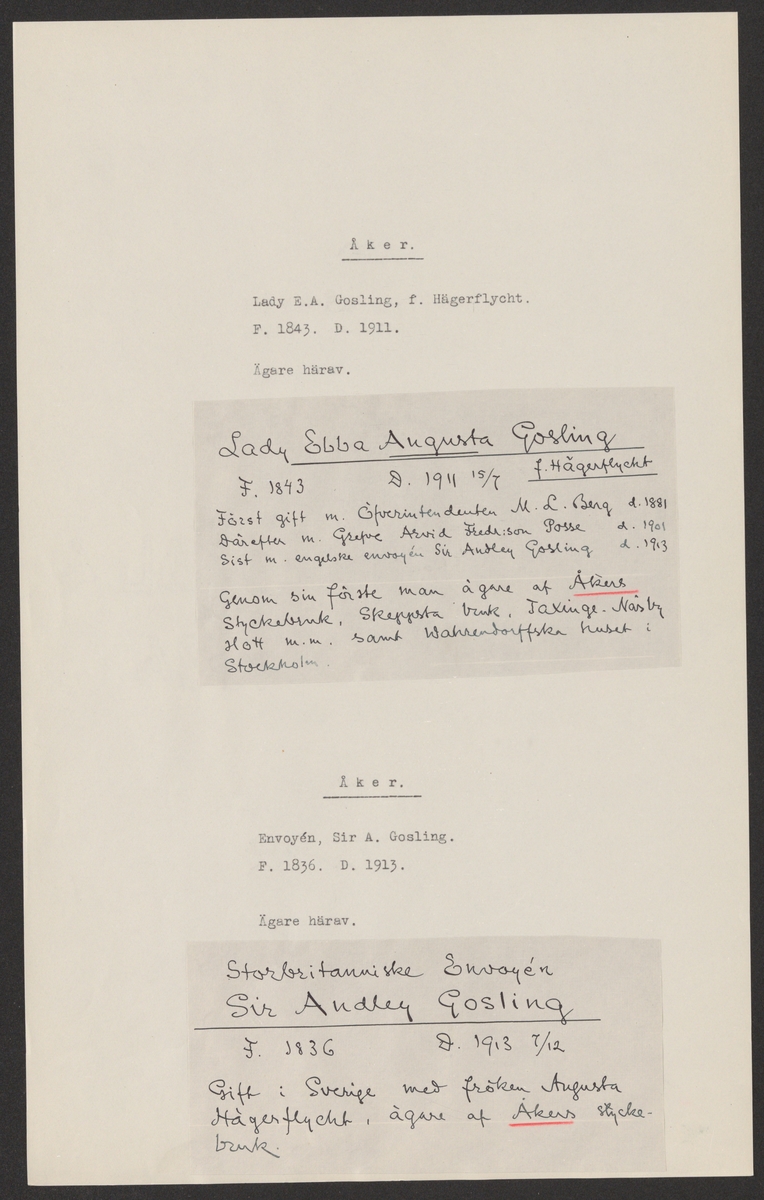 Å k e r.
Lady E.A. Gosling, f. Hägerflycht.
F. 1843. D. 1911.
Ägare härav.
Lady Ebba Augusta Gosling
f. Hägerflycht
F. 1843 D. 1911 15/7
Först gift m. Öfverintendenten M. L. Berg d. 1881
Därefter m. Grefve Arvid Fredr:son Posse d. 1901
Sist m. engelske envoyén Sir Andley Gosling d. 1913
Genom sin förste man ägare af Åkers
Styckebruk, Skeppsta bruk, Taxinge-Näsby
slott m.m. samt Wahrendorffska huset i
Stockholm.
Å k e r.
Envoyén, Sir A. Gosling.
F. 1836. D. 1913.
Ägare härav.
Storbritanniske Envoyén
Sir Andley Gosling
F. 1836 D. 1913 7/12
Gift i Sverige med fröken Augusta
Hägerflycht, ägare af Åkers stycke-
bruk.